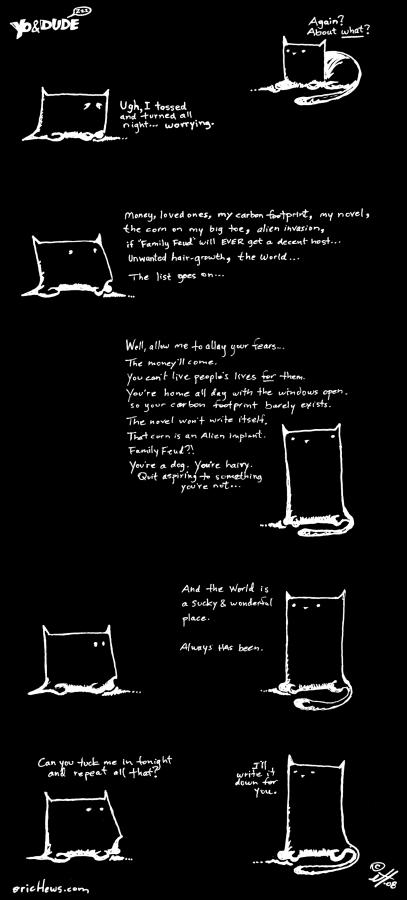 YO&DUDE
Again?
About what?
Ugh, I tossed
and turned all
night... worrying.
Money, loved ones, my carbon footprint, my novel,
the corn on my big toe, alien invasion,
if "Family Feud" will EVER get a decent host...
Unwanted hair-growth, the World...
The list goes on...
Well, allow me to allay your fears...
The money'll come.
You can't live people's lives for them.
You're home all day with the windows open.
so your carbon footprint barely exists.
The novel won't write itself.
That corn is an Alien Implant.
Family Feud?!
You're a dog. You're hairy.
Quit aspiring to something
you're not...
And the World is
a sucky & wonderful
place.
Always HAS been.
Can you tuck me in tonight
and repeat all that?
I'll
write it
down for
you.
©
-08
ericHews.com